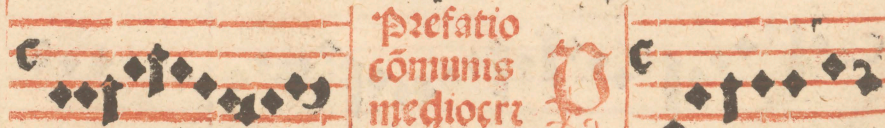 Prefatio
cõmunis
mediocrꝛ
P